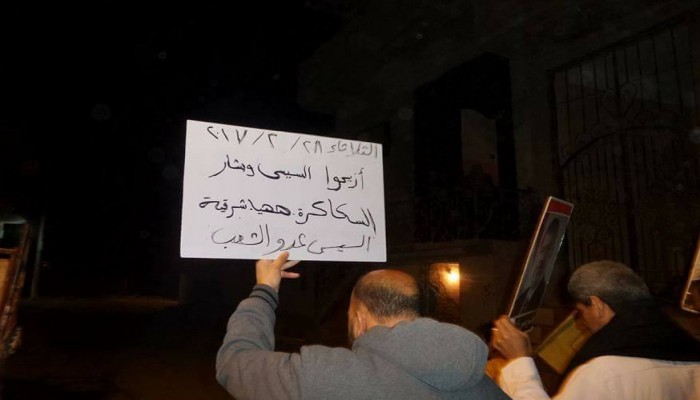 الثلاثاء ٢٨/٢/٢٠١٧
أزيحوا السيسى وبشار
السكاكرة.ههيا شرقية
السيسى عدو الشعب